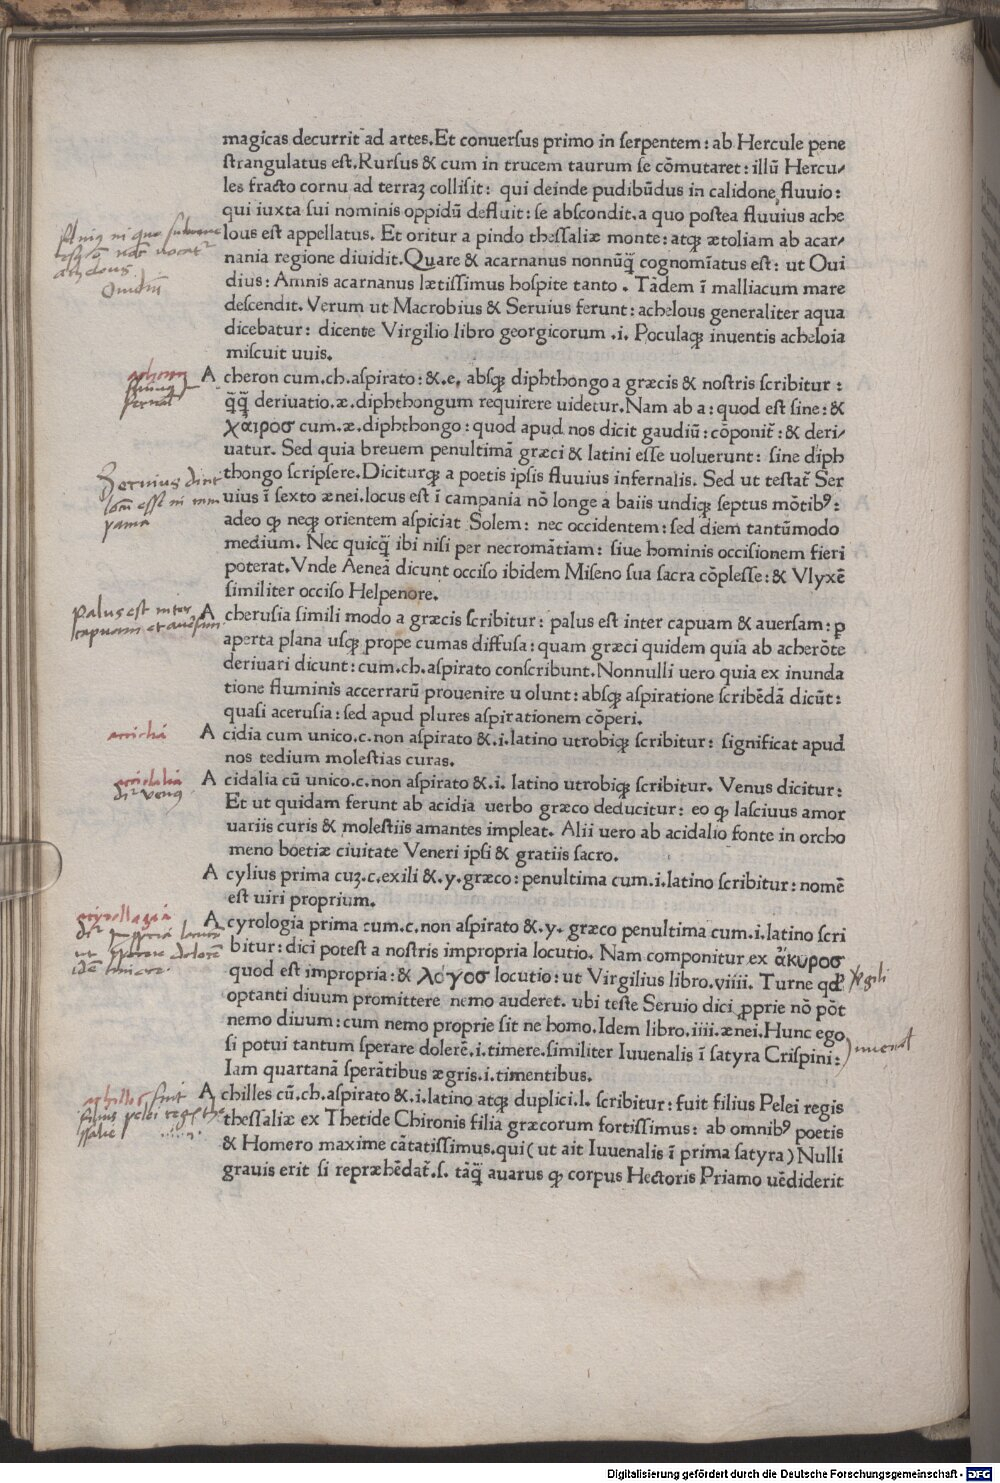 magicas decurrit ad artes. Et conuersus primo in serpentem: ab Hercule pene
strangulatus est. Rursus & cum in trucem taurum se cōmutaret: illū Hercu-
les fracto cornu ad terraꝫ collisit: qui deinde pudibūdus in calidone fluuio:
qui iuxta sui nominis oppidū defluit: se abscondit. a quo postea fluuius ache
lous est appellatus. Et oritur a pindo thessaliæ monte: atqꝫ ætoliam ab acar-
nania regione diuidit. Quare & acarnanus nonnūq̄ cognomīatus est: ut Oui
dius: Amnis acarnanus lætissimus hospite tanto. Tādem ī malliacum mare
descendit. Verum ut Macrobius & Seruius ferunt: achelous generaliter aqua
dicebatur: dicente Virgilio libro georgicorum .i. Poculaqꝫ inuentis acheloia
miscuit uuis.
A cheron cum.ch.aspirato: &.e. absqꝫ diphthongo a græcis & nostris scribitur:
q̄q̄ deriuatio.æ.diphthongum requirere uidetur. Nam ab a: quod est sine: &
χαιροσ cum.æ.diphthongo: quod apud nos dicit gaudiū: cōponit̄: & deri-
uatur. Sed quia breuem penultimā græci & latini esse uoluerunt: sine diph
thongo scripsere. Diciturqꝫ a poetis ipsis fluuius infernalis. Sed ut testat̄ Ser
uius ī sexto ænei. locus est ī campania nō longe a baiis undiqꝫ septus mōtibꝰ:
adeo ꝙ neqꝫ orientem aspiciat Solem: nec occidentem: sed diem tantūmodo
medium. Nec quicq̄ ibi nisi per necromātiam: siue hominis occisionem fieri
poterat. Vnde Aeneā dicunt occiso ibidem Miseno sua sacra cōplesse: & Vlyxē
similiter occiso Helpenore.
A cherusia simili modo a græcis scribitur: palus est inter capuam & auersam: ꝑ
aperta plana usqꝫ prope cumas diffusa: quam græci quidem quia ab acherōte
deriuari dicunt: cum.ch.aspirato conscribunt. Nonnulli uero quia ex inunda
tione fluminis accerrarū prouenire u olunt: absqꝫ aspiratione scribēdā dicūt:
quasi acerusia: sed apud plures aspirationem cōperi.
A cidia cum unico.c.non aspirato &.i.latino utrobiqꝫ scribitur: significat apud
nos tedium molestias curas.
A cidalia cū unico.c.non aspirato &.i. latino utrobiqꝫ scribitur. Venus dicitur:
Et ut quidam ferunt ab acidia uerbo græco deducitur: eo ꝙ lasciuus amor
uariis curis & molestiis amantes impleat. Alii uero ab acidalio fonte in orcho
meno boetiæ ciuitate Veneri ipsi & gratiis sacro.
A cylius prima cuꝫ.c.exili &.y.græco: penultima cum.i.latino scribitur: nomē
est uiri proprium.
A cyrologia prima cum.c.non aspirato &.y. græco penultima cum.i.latino scri
bitur: dici potest a nostris impropria locutio. Nam componitur ex ἄκυροσ
quod est impropria: & λόγοσ locutio: ut Virgilius libro.viiii. Turne qd̄ Virgili
optanti diuum promittere nemo auderet. ubi teste Seruio dici ꝓprie nō pōt
nemo diuum: cum nemo proprie sit ne homo. Idem libro.iiii.ænei. Hunc ego
si potui tantum sperare dolorē.i.timere.similiter Iuuenalis ī satyra Crispini: iuuenal
Iam quartanā sperātibus ægris.i.timentibus.
A chilles cū.ch.aspirato &.i.latino atqꝫ duplici.l. scribitur: fuit filius Pelei regis
thessaliæ ex Thetide Chironis filia græcorum fortissimus: ab omnibꝰ poetis
& Homero maxime cātatissimus. qui (ut ait Iuuenalis ī prima satyra) Nulli
grauis erit si repræhēdat̄.s. tāq̄ auarus ꝙ corpus Hectoris Priamo uēdiderit
achelous
Ouidiū
palus est inter
capuam et auersam
accidia
accidalia
dr̄ venus
Digitalisierung gefördert durch die Deutsche Forschungsgemeinschaft - DFG